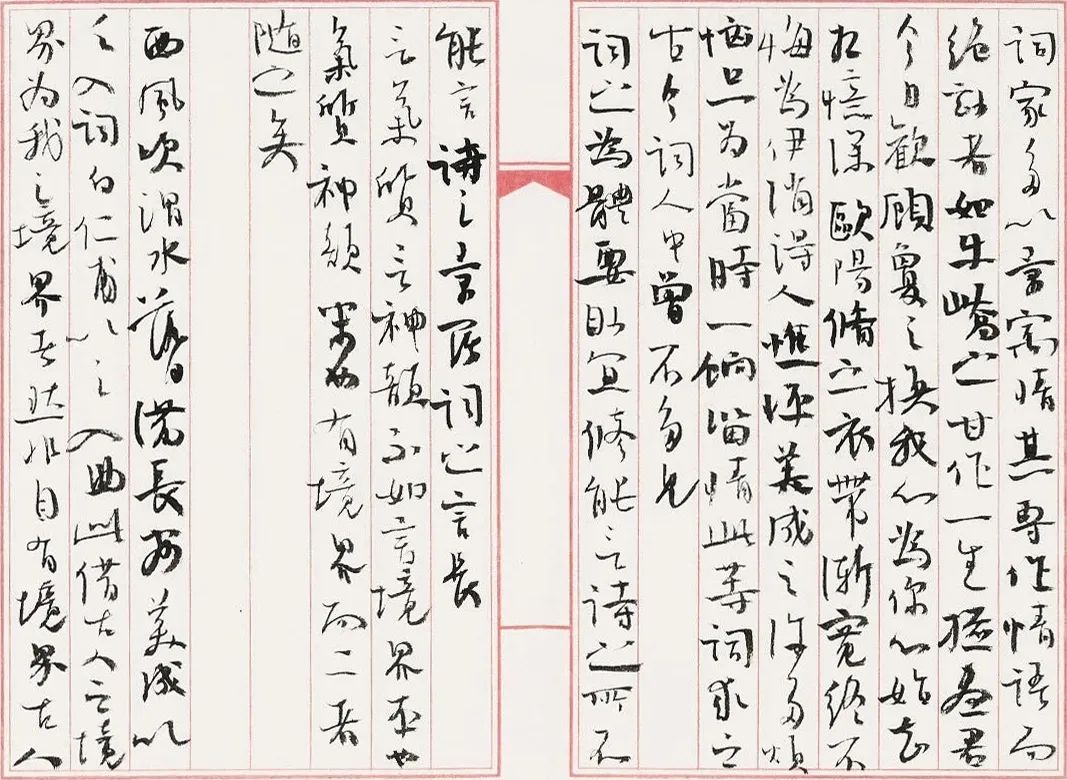 詞家多以景寓情其專作情語而
絕妙者如牛嶠之甘作一生拚盡君
今日歡顧夐之換我心為你心始知
相憶深歐陽脩之衣帶漸寬終不
悔為伊消得人憔悴美成之許多煩
惱只為當時一餉留情此等詞求之
古今詞人中曾不多見
詞之為體要眇宜修能言詩之所不
能言詩之景闊詞之言長
言氣質言神韻不如言境界本也
氣質神韻末也有境界而二者
隨之矣
西風吹渭水落日滿長安美成以
之入詞白仁甫以之入曲此借古人之境
界为我之境界者然非自有境界古人